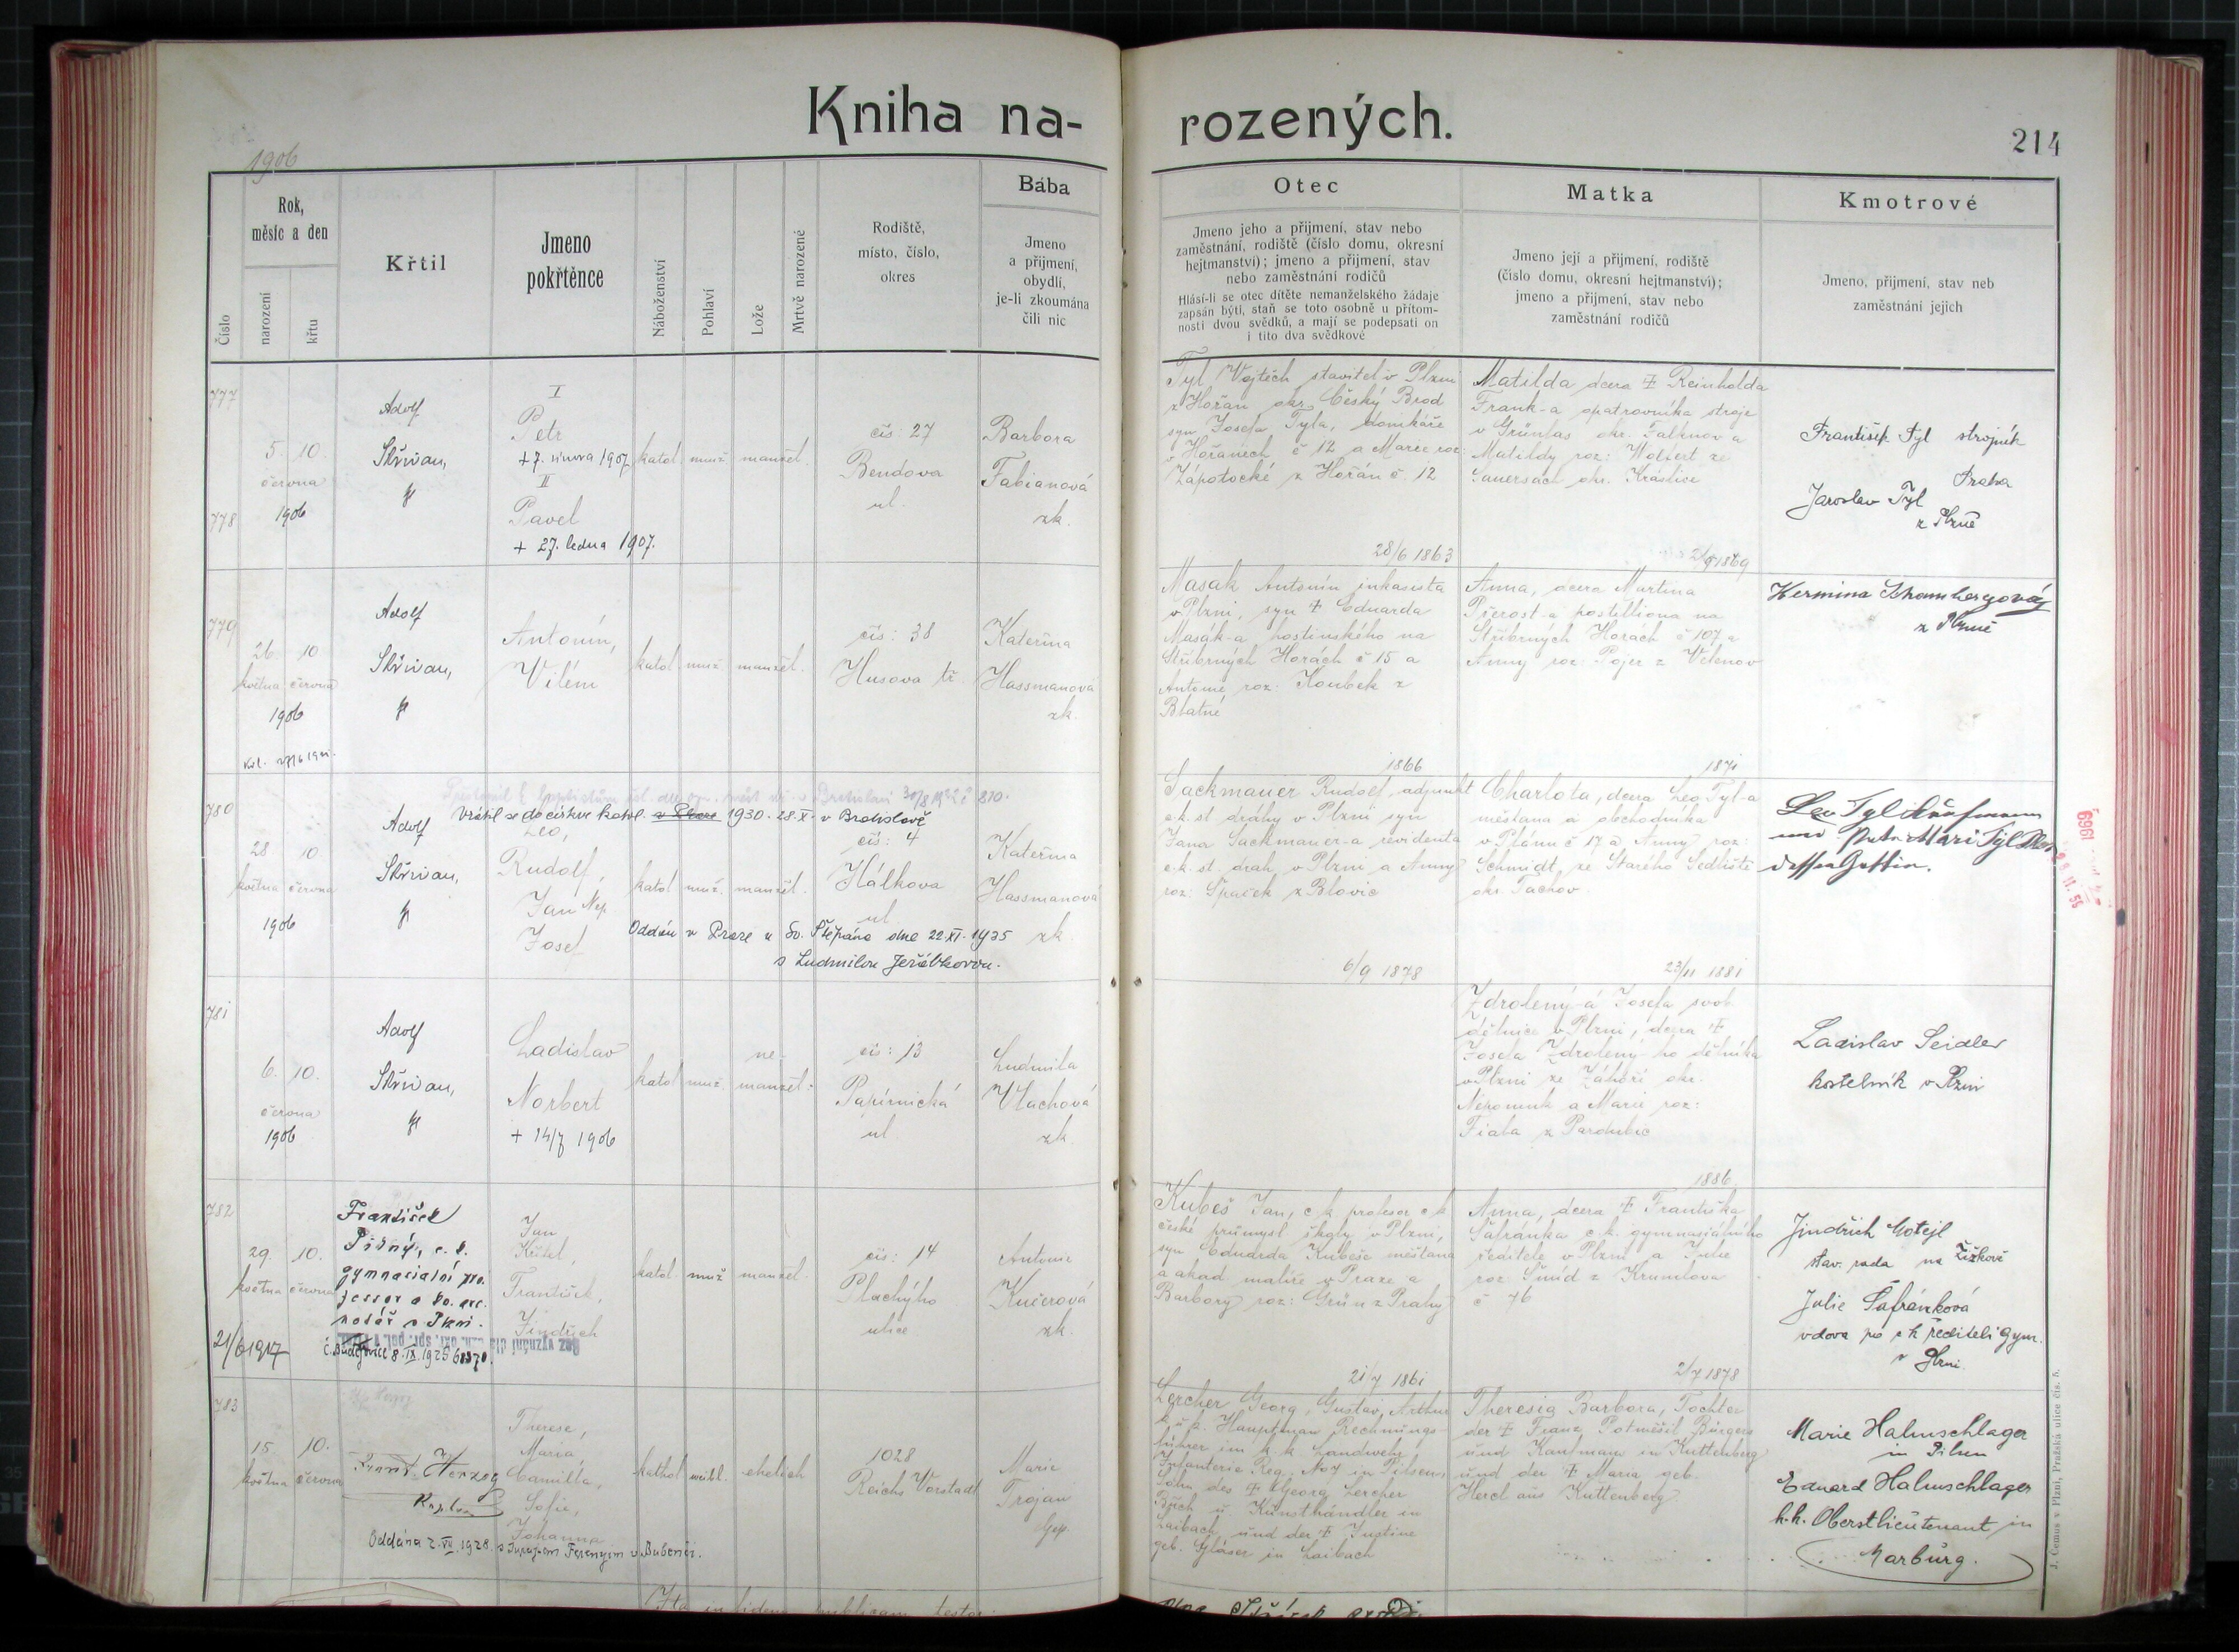 Kniha na-
rozených.
214
1906
Číslo
Rok,
měsíc a den
narození
křtu
Křtil
Jmeno
pokřtěnce
Náboženství
Pohlaví
Lože
Mrtvě narozené
Rodiště,
místo, číslo,
okres
Bába
Jmeno
a přijmení,
obydlí,
je-li zkoumána
čili nic
Otec
Jmeno jeho a přijmení, stav nebo
zaměstnání, rodiště (číslo domu, okresní
hejtmanství); jmeno a přijmení, stav
nebo zaměstnání rodičů
Hlásí-li se otec dítěte nemanželského žádaje
zapsán býti, staň se toto osobně u přítom-
nosti dvou svědků, a mají se podepsati on
i tito dva svědkové
Matka
Jmeno její a přijmení, rodiště
(číslo domu, okresní hejtmanství);
jmeno a přijmení, stav nebo
zaměstnání rodičů
Kmotrové
Jmeno, přijmení, stav neb
zaměstnání jejich
777
778
5. 10.
června
1906
Adolf
Skřivan,
I
Petr
+ 7. února 1907
II
Pavel
+ 27. ledna 1907.
katol. muž. manžel.
čís: 27
Bendova
ul.
Barbora
Fabianová
zk.
Tyl Vojtěch stavitel v Plzni
z Hořan okr. Český Brod
syn Josefa Tyla, domkáře
v Hořanech č 12 a Marie roz:
Zápotocké z Hořan č. 12
28/6 1863
Matilda dcera Ŧ Reinholda
Frank-a opatrovníka stroje
v Grünlas okr. Falknov a
Matildy roz: Wolfert ze
Sauersack okr. Kraslice
František Tyl strojník
Praha
Jaroslav Tyl
z Plzně
779
26. 10
května června
1906
Adolf
Skřivan,
Antonín,
Vilém
katol. muž. manžel.
čís: 38
Husova tř.
Kateřina
Hassmanová
zk.
Masak Antonín inkasista
v Plzni, syn Ŧ Eduarda
Masák-a hostinského na
Stříbrných Horách č 15 a
Antonie roz: Koubek z
Blatné
1866
Anna, dcera Martina
Přerost-a postilliona na
Stříbrných Horách č 107 a
Anny roz: Pojer z Velenov
1871
z Plzně
780
28 10
května června
1906
Adolf
Skřivan,
Vrátil se do církve katol. v Praze 1930. 28. X. v Bratislavě
Leo,
Rudolf,
Jan Nep.
Josef
katol. muž. manžel.
čís: 4
Hálkova
ul.
Kateřina
Hassmanová
zk
Oddán v Praze u Sv. Štěpána dne 22. XI. 1935
s Ludmilou Jeřábkovou.
Sackmauer Rudolf, adjunkt
c.k. st. dráhy v Plzni syn
Jana Sackmauer-a revidenta
c.k. st. drah v Plzni a Anny
roz: Špaček z Blovic
6/9 1878
Charlota, dcera Leo Tyl-a
měšťana a obchodníka
v Plánu č 17 a Anny roz:
Schmidt, ze Starého Sedliště
okr. Tachov
23/11 1881
781
6. 10.
června
1906
Adolf
Skřivan,
Ladislav
Norbert
+ 14/7 1906
katol. muž. ne-
manžel:
čís: 13
Papírnická
ul
Ludmila
Vlachová
zk.
Zdrolený-á Josefa svob.
dělnice v Plzni, dcera Ŧ
Josefa Zdrolený-ho dělníka
v Plzni ze Záhoří okr.
Nepomuk a Marie roz:
Fiala z Pardubic
1886.
Ladislav Seidler
kostelník v Plzni
782
29. 10.
května června
21/6 1917
František
gymnasialní pro-
fessor a
notář v Plzni.
Jan
Křtitel,
František,
Jindřich
katol. muž manžel.
čís: 14
Plachýho
ulice
Antonie
Kučerová
zk.
Kubeš Jan, c.k. profesor c.k.
české průmysl. školy v Plzni,
syn Eduarda Kubeše měšťana
a akad. malíře v Praze a
Barbory roz: Grün z Prahy
21/7 1861
Anna, dcera Ŧ Františka
Šafránka c.k. gymnasiálního
ředitele v Plzni a Julie
roz. Šmíd z Krumlova
č 76
2/7 1878
Jindřich
stav. rada na Žižkově
Julie Šafránková
vdova po c.k. řediteli gym.
v Plzni.
783
15. 10.
května června
Herzog
Kaplan
Therese,
Maria,
Camilla,
Sofie,
Johanna
kathol. weibl. ehelich
1028
Reichs Vorstadt
Marie
Trojan
Gep.
Oddána 2. VII. 1928.
Lercher Georg, Gustav, Arthur
k.u.k. Hauptman Rechnungs-
führer im k.k. Landwehr
Infanterie Reg. No 7 in Pilsen,
Sohn des Ŧ Georg Lercher
Buch u. Kunsthändler in
Laibach und der Ŧ Justine
geb. Gläser in Laibach
Theresia Barbora, Tochter
der Ŧ Franz Potměšil Bürgers
und Kaufmann in Kuttenberg
und der Ŧ Maria geb.
Hercl aus Kuttenberg
Marie Halmschlager
in Pilsen
Eduard Halmschlager
k.k. Oberstlieutenant in
Marburg.